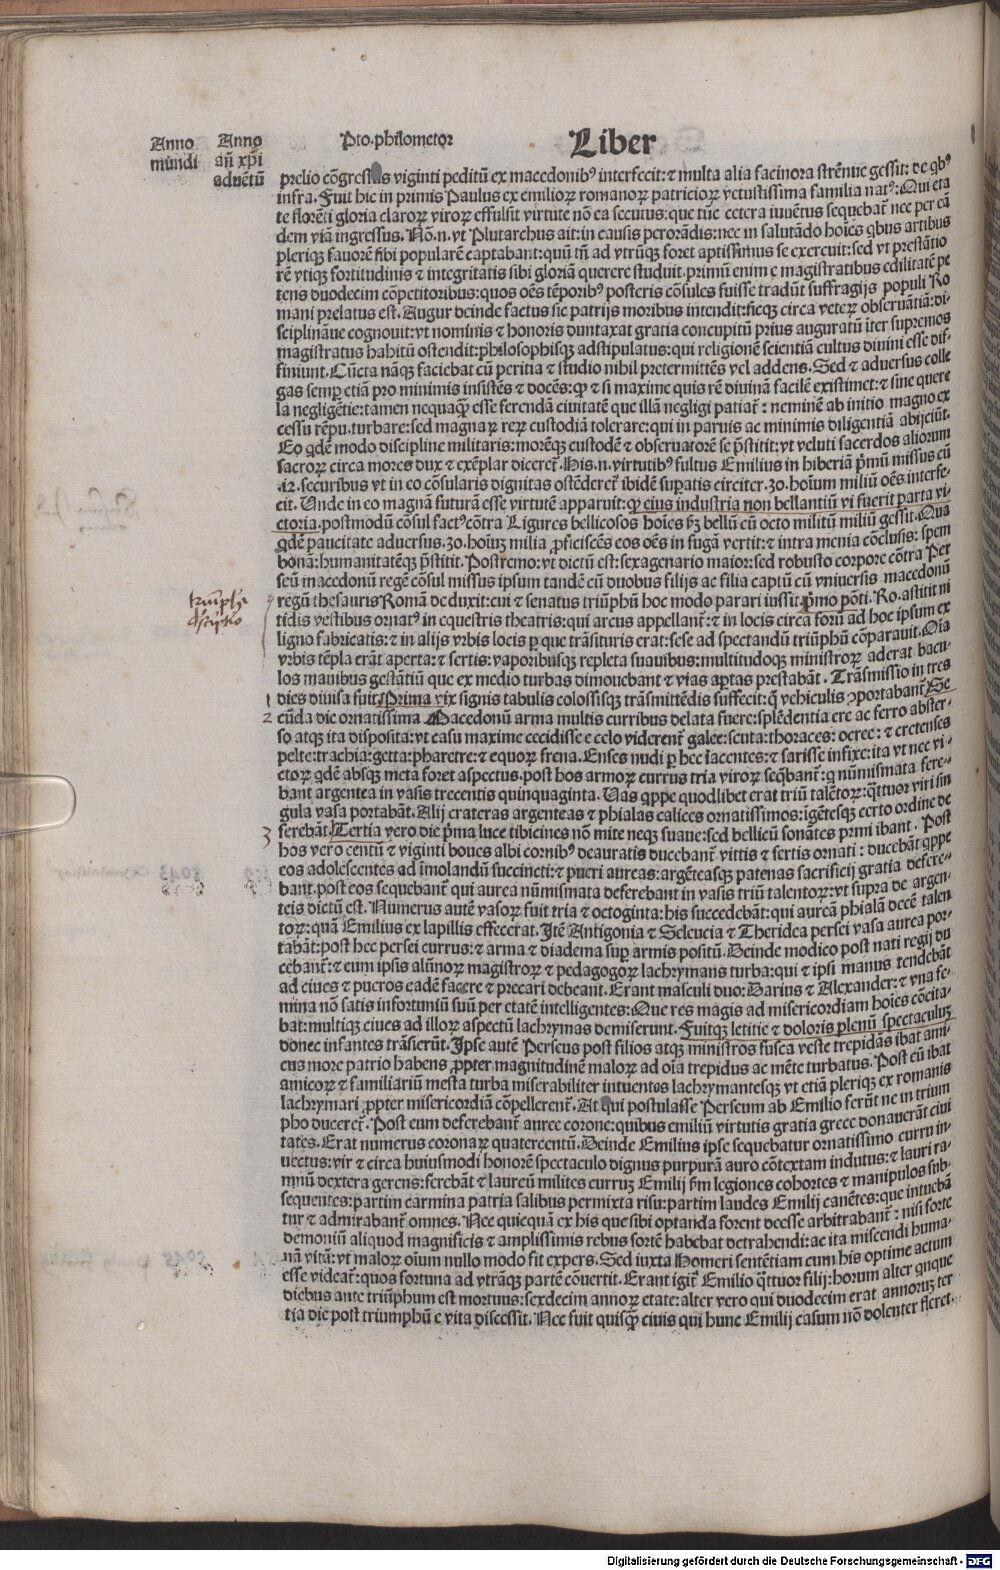 Anno mundi
Anno
añ xp̄i
aduētū
Pto. philometor
Liber
prelio cōgressus viginti peditū ex macedonibꝰ interfecit: ⁊ multa alia facinora strēnue gessit: de q̄bꝰ
infra. Fuit hic in primis Paulus ex emilioꝝ romanoꝝ patricioꝝ vetustissima familia natꝰ. Qui eta
te florēti gloria claroꝝ viroꝝ effulsit virtute nō eā secutus: que tūc cetera iuuētus sequebat̄ nec per eā
dem viā ingressus. Nō.n. vt Plutarchus ait: in causis perorādis: nec in salutādo hoīes q̄bus artibus
pleriqꝫ fauorē sibi popularē captabant: quū tn̄ ad vtrūqꝫ foret aptissimus se exercuit: sed vt prestātio
rē vtiqꝫ fortitudinis ⁊ integritatis sibi gloriā querere studuit. primū enim e magistratibus edilitatē pe
tens duodecim cōpetitoribus: quos oēs tēporibꝰ posteris cōsules fuisse tradūt suffragijs populi Ro
mani prelatus est. Augur deinde factus sic patrijs moribus intendit: sicqꝫ circa veteꝝ obseruātiā: di-
sciplināue cognouit: vt nominis ⁊ honoris duntaxat gratia concupitū prius auguratū iter supremos
magistratus habitū ostendit: philosophisqꝫ adstipulatus: qui religionē scientiā cultus diuini esse dif-
finiunt. Cūcta nāqꝫ faciebat cū peritia ⁊ studio nihil pretermittēs vel addens. Sed ⁊ aduersus colle
gas semꝑ etiā pro minimis insistēs ⁊ docēs: ꝙ ⁊ si maxime quis rē diuinā facilē existimet: ⁊ sine quere
la negligētie: tamen nequaꝙ̄ esse ferendā ciuitatē que illā negligi patiat̄: neminē ab initio magno ex
cessu rēpu. turbare: sed magnaꝝ reꝝ custodiā tolerare: qui in paruis ac minimis diligentiā abijciūt.
Eo q̄dē modo discipline militaris: morēqꝫ custodē ⁊ obseruatorē se p̄stitit: vt veluti sacerdos aliorum
sacroꝝ circa mores dux ⁊ exēplar diceret̄. His.n. virtutibꝰ fultus Emilius in hiberiā p̄mū missus cū
.12. securibus vt in eo cōsularis dignitas ostēderet̄ ibidē suꝑatis circiter .30. hoīum miliū oēs interfe-
cit. Unde in eo magnā futurā esse virtutē apparuit: ꝙ eius industria non bellantiū vi fuerit parta vi-
ctoria. postmodū cōsul factꝰ cōtra Ligures bellicosos hoīes ẜm bellū cū octo militū miliū gessit. Qua
q̄dē paucitate aduersus .30. hoīuꝫ milia ꝓficiscēs eos oēs in fugā vertit: ⁊ intra menia cōclusis: spem
bonā: humanitatēqꝫ p̄stitit. Postremo: vt dictū est: sexagenario maior: sed robusto corpore cōtra Per
seū macedonū regē cōsul missus ipsum tandē cū duobus filijs ac filia captū cū vniuersis macedonū
regū thesauris Romā deduxit: cui ⁊ senatus triūphū hoc modo parari iussit. p̄mo pōti. Ro. astitit ni
tidis vestibus ornatꝰ in equestris theatris: qui arcus appellant̄: ⁊ in locis circa forū ad hoc ipsum ex
ligno fabricatis: ⁊ in alijs vrbis locis ꝑ que trāsituris erat: sese ad spectandū triūphū cōparauit. Oīa
vrbis tēpla erāt aperta: ⁊ sertis: vaporibusqꝫ repleta suauibus: multitudoqꝫ ministroꝝ aderat bacu-
los manibus gestātiū que ex medio turbas dimouebant ⁊ vias aptas prestabāt. Trāsmissio in tres
dies diuisa fuit. Prima vix signis tabulis colossisqꝫ trāsmittēdis suffecit: q̄ vehiculis ꝓportabant̄ Se
cūda die ornatissima Macedonū arma multis curribus delata fuere: splēdentia ere ac ferro abster-
so atqꝫ ita disposita: vt casu maxime cecidisse e celo viderent̄ galee: scuta: thoraces: ocree: ⁊ cretenses
pelte: trachia: getta: pharetre: ⁊ equoꝝ frena. Enses nudi ꝑ hec iacentes: ⁊ sarisse infixe: ita vt nec vi-
ctoꝝ q̄dē absqꝫ meta foret aspectus. post hos armoꝝ currus tria viroꝝ seq̄bant̄: q̄ nūmismata fere-
bant argentea in vasis trecentis quinquaginta. Uas q̄ppe quodlibet erat triū talētoꝝ: q̄ttuor viri sin
gula vasa portabāt. Alij crateras argenteas ⁊ phialas calices ornatissimos: īgētesqꝫ certo ordine de
ferebāt. Tertia vero die p̄ma luce tibicines nō mite neqꝫ suaue: sed bellicū sonātes prmi ibant. Post
hos vero centū ⁊ viginti boues albi cornibꝰ deauratis ducebant̄ vittis ⁊ sertis ornati: ducebāt q̄ppe
eos adolescētes ad īmolandū succincti: ⁊ pueri aureas: argēteasqꝫ patenas sacrificij gratia defere-
bant. post eos sequebant̄ qui aurea nūmismata deferebant in vasis triū talentoꝝ: vt supra de argen-
teis dictū est. Numerus autē vasoꝝ fuit tria ⁊ octoginta: his succedebāt: qui aureā phialā decē talen
toꝝ: quā Emilius ex lapillis effecerat. Itē Antigonia ⁊ Seleucia ⁊ Theridea persei vasa aurea por-
tabāt: post hec persei currus: ⁊ arma ⁊ diadema suꝑ armis positū. Deinde modico post nati regij du
cebant̄: ⁊ cum ipsis alūnoꝝ magistroꝝ ⁊ pedagogoꝝ lachrymans turba: qui ⁊ ipsi manus tendebāt
ad ciues ⁊ pueros eadē facere ⁊ precari debeant. Erant masculi duo: Darius ⁊ Alexander: ⁊ vna fe-
mina nō satis infortuniū suū per etatē intelligentes: Que res magis ad misericordiam hoīes cōcita-
bat: multiqꝫ ciues ad illoꝝ aspectū lachrymas demiserunt. Fuitqꝫ letitie ⁊ doloris plenū spectaculuꝫ
donec infantes trāsierūt. Ipse autē Perseus post filios atqꝫ ministros fusca veste trepidās ibat ami-
ctus more patrio habens ꝓpter magnitudinē maloꝝ ad oīa trepidus ac mēte turbatus. Post eū ibat
amicoꝝ ⁊ familiariū mesta turba miserabiliter intuentes lachrymantesqꝫ vt etiā pleriqꝫ ex romanis
lachrymari ꝓpter misericordiā cōpellerent̄. At qui postulasse Perseum ab Emilio ferūt ne in trium
pho duceret̄. Post eum deferebant̄ auree corone: quibus emiliū virtutis gratia grece donauerāt ciui
tates. Erat numerus coronaꝝ quatercentū. Deinde Emilius ipse sequebatur ornatissimo curru in-
uectus: vir ⁊ circa huiusmodi honorē spectaculo dignus purpurā auro cōtextam indutus: ⁊ lauri ra-
mnū dextera gerens: ferebāt ⁊ laureū milites curruꝫ Emilij ẜm legiones cohortes ⁊ manipulos sub-
sequentes: partim carmina patria salibus permixta risu: partim laudes Emilij canētes: que intuebā
tur ⁊ admirabant̄ omnes. Nec quicquā ex his que sibi optanda forent deesse arbitrabant̄: nisi forte
demoniū aliquod magnificis ⁊ amplissimis rebus sortē habebat detrahendi: ac ita miscendi huma-
nā vitā: vt maloꝝ oīum nullo modo sit expers. Sed iuxta Homeri sentētiam cum his optime actum
esse videat̄: quos fortuna ad vtrāqꝫ partē cōuertit. Erant igit̄ Emilio q̄ttuor filij: horum alter quqꝫ
diebus ante triūphum est mortuus: sexdecim annoꝝ etate: alter vero qui duodecim erat annoruꝫ ter
tia die post triumphū e vita discessit. Nec fuit quisꝙ̄ ciuis qui hunc Emilij casum nō dolenter fleret.
1
2
3
Digitalisierung gefördert durch die Deutsche Forschungsgemeinschaft - DFG